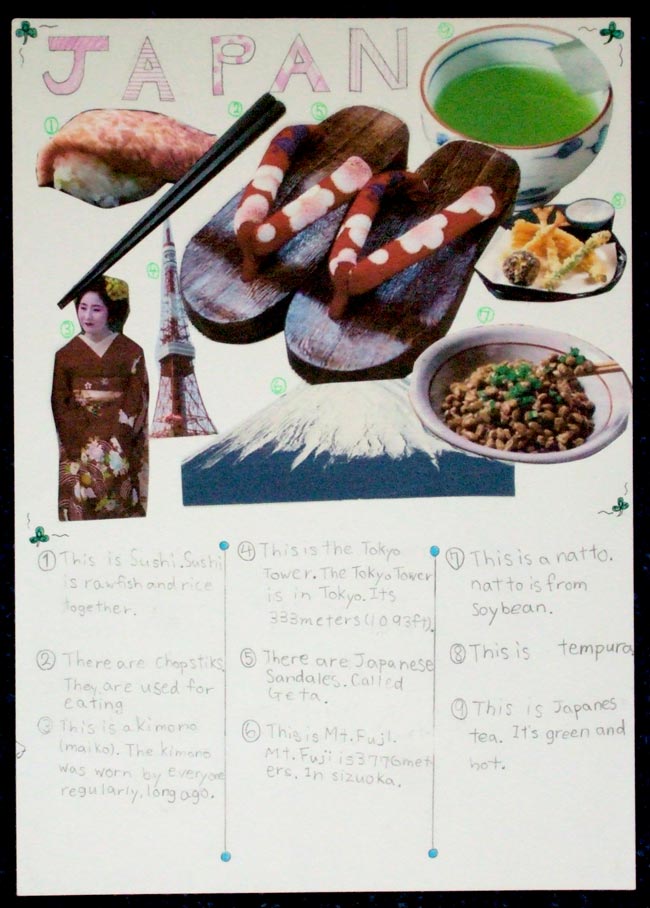 JAPAN
①
②
③
④
⑤
⑥
⑦
⑧
⑨
① This is Sushi. Sushi
is rawfish and rice
together.
② There are chopstiks
They are used for
eating
③ This is a kimono
(maiko). The kimono
was worn by everyone
regularly, long ago.
④ This is the Tokyo
Tower. The Tokyo Tower
is in Tokyo. Its
333meters (1093ft).
⑤ There are Japanese
Sandales. Called
Geta.
⑥ This is Mt. Fuji.
Mt. Fuji is 3776met
ers. In sizuoka.
⑦ This is a natto.
natto is from
soybean.
⑧ This is tempura
⑨ This is Japanes
tea. It's green and
hot.